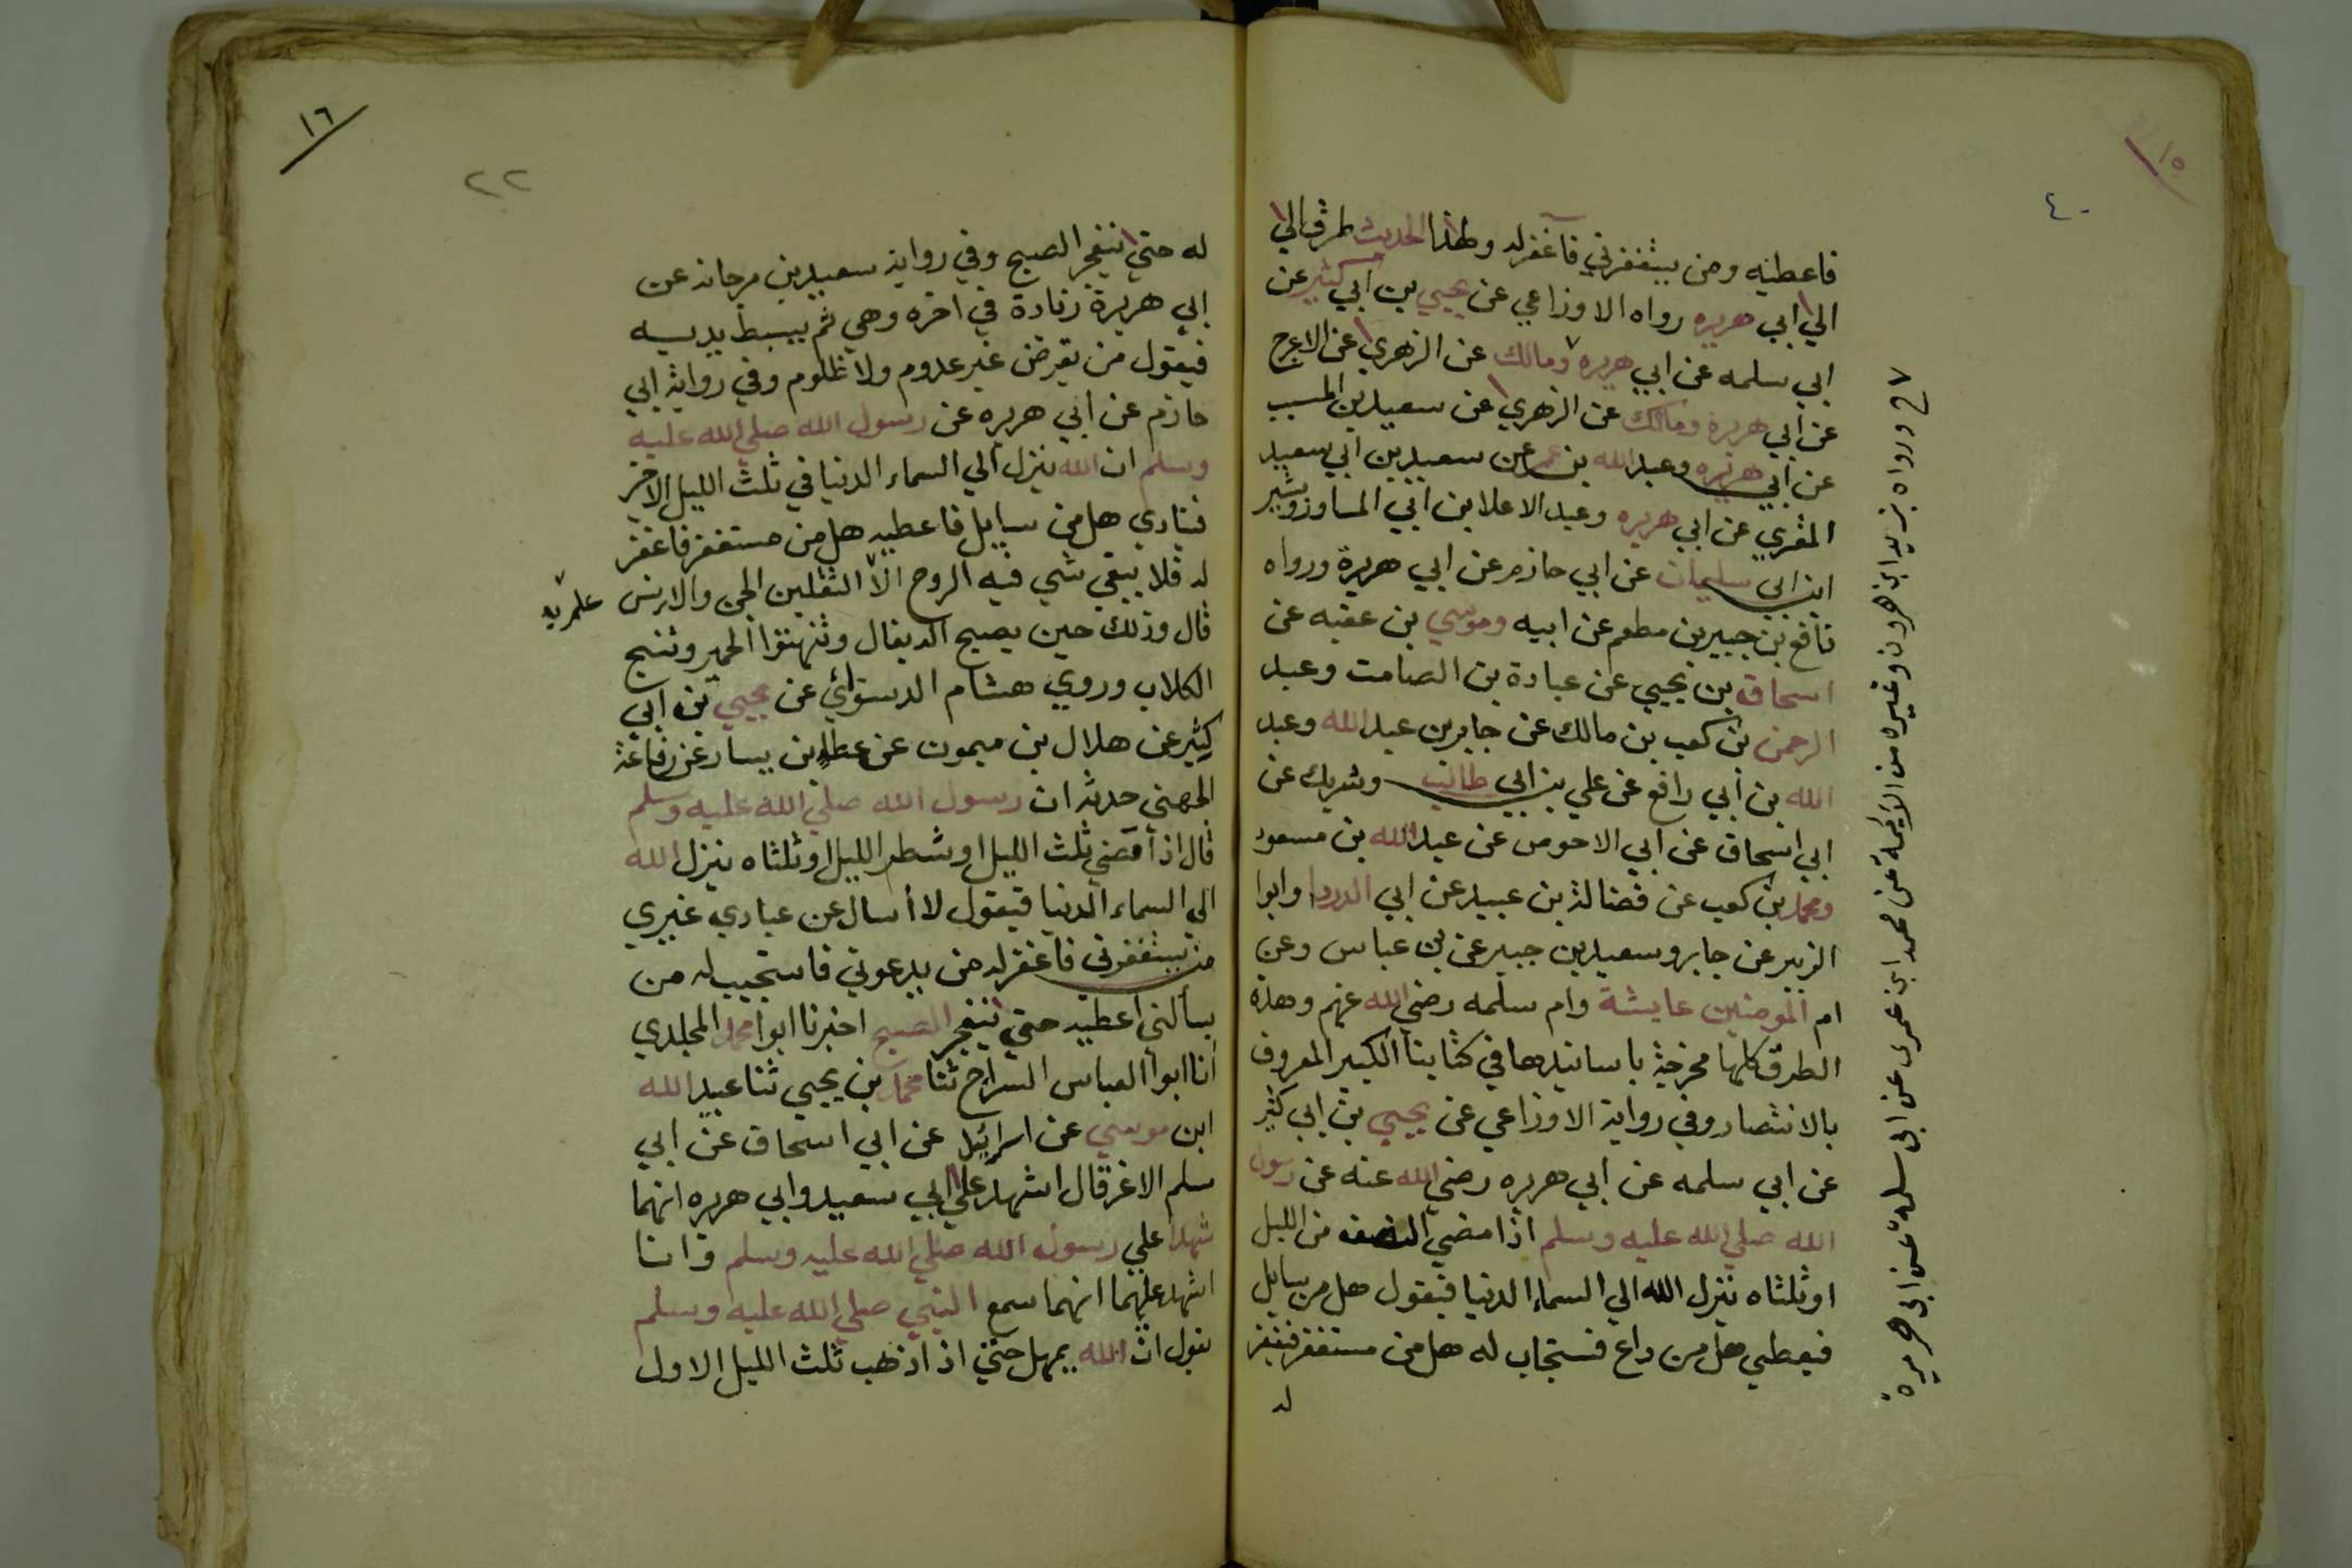 ١٥
٤٠
فاعطيه ومن يستغفرني فاغفر له ولهذا الحديث طرق الي
الي ابي هريره رواه الاوزاعي عن يحيي بن ابي كثير عن
ابي سلمه عن ابي هريره ومالك عن الزهري عن الاعرج
عن ابي هريرة ومالك عن الزهري عن سعيد بن المسيب
عن ابي هريره وعبد الله بن عمر عن سعيد بن ابي سعيد
المقري عن ابي هريره وعبد الاعلا بن ابي المساور وبشير
ابن ابي سليمان عن ابي حازم عن ابي هريرة ورواه
نافع بن جبير بن مطعم عن ابيه وموسي بن عقبه عن
اسحاق بن يحيي عن عبادة بن الصامت وعبد
الرحمن بن كعب بن مالك عن جابر بن عبد الله وعبد
الله بن أبي رافع عن علي بن ابي طالب وشريك عن
ابي اسحاق عن ابي الاحوص عن عبد الله بن مسعود
ومحمد بن كعب عن فضالة بن عبيد عن ابي الدردا وابوا
الزبير عن جابر وسعيد بن جبير عن بن عباس وعن
ام المومنين عايشة وام سلمه رضي الله عنهم وهذه
الطرق كلها مخرجة باسانيدها في كتابنا الكبير المعروف
بالانتصار وفي رواية الاوزاعي عن يحيي بن ابي كثير
عن ابي سلمه عن ابي هريره رضي الله عنه عن رسول
الله صلي الله عليه وسلم اذا مضي النصف من الليل
او ثلثاه ينزل الله الي السماء الدنيا فيقول هل من سايل
فيعطي هل من داع فستجاب له هل من مستغفر فيغفر
له
ورواه يزيد ابن هرون وغيره من الأيمة عن محمد ابن عمرى عن ابى سلمة عن ابى هريرة
١٦
٢٢
له حتي ينفجر الصبح وفي رواية سعيد بن مرجانه عن
ابي هريرة زيادة في اخره وهي ثم يبسط يديه
فيقول من يقرض غير عدوم ولا ظلوم وفي رواية ابي
حازم عن ابي هريره عن رسول الله صلي الله عليه
وسلم ان الله ينزل الي السماء الدنيا في ثلث الليل الاخر
فينادي هل من سايل فاعطيه هل من مستغفر فاغفر
له فلا يبقي شي فيه الروح الا الثقلين الجن والانس
علم به
قال وذلك حين يصيح الديفال وتنهتوا الحمير وتنبح
الكلاب وروي هشام الدستوائي عن يحيي بن ابي
كثير عن هلال بن ميمون عن عطا بن يسار عن رفاعة
الجهني حدثه ان رسول الله صلي الله عليه وسلم
قال اذا مضي ثلث الليل او شطر الليل او ثلثاه ينزل الله
الي السماء الدنيا فيقول لا أسال عن عبادي غيري
من يستغفرني فاغفر له من يدعوني فاستجيب له من
يسألني أعطيه حتي ينفجر الصبح اخبرنا ابوا محمد المخلدي
انا ابوا العباس السراج ثنا محمد بن يحيي ثنا عبيد الله
ابن موسي عن اسرائيل عن ابي اسحاق عن ابي
سلم الاغر قال اشهد علي ابي سعيد وابي هريره انهما
شهدا علي رسول الله صلي الله عليه وسلم وانا
اشهد عليهما انهما سمع النبي صلي الله عليه وسلم
يقول ان الله يمهل حتي اذا ذهب ثلث الليل الاول